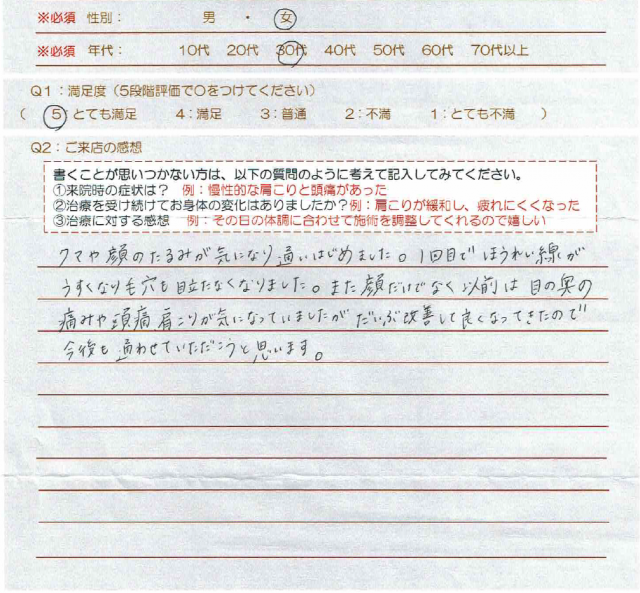 ※必須 性別： 男 ・ 女
※必須 年代： 10代 20代 30代 40代 50代 60代 70代以上
Q1：満足度（5段階評価で〇をつけてください）
（ 5：とても満足 4：満足 3：普通 2：不満 1：とても不満 ）
Q2：ご来店の感想
書くことが思いつかない方は、以下の質問のように考えて記入してみてください。
①来院時の症状は？ 例：慢性的な肩こりと頭痛があった
②治療を受け続けてお身体の変化はありましたか？例：肩こりが緩和し、疲れにくくなった
③治療に対する感想 例：その日の体調に合わせて施術を調整してくれるので嬉しい
クマや顔のたるみが気になり通いはじめました。1回目でほうれい線が
うすくなり毛穴も目立たなくなりました。また顔だけでなく以前は目の奥の
痛みや頭痛肩こりが気になっていましたがだいぶ改善して良くなってきたので
今後も通わせていただこうと思います。